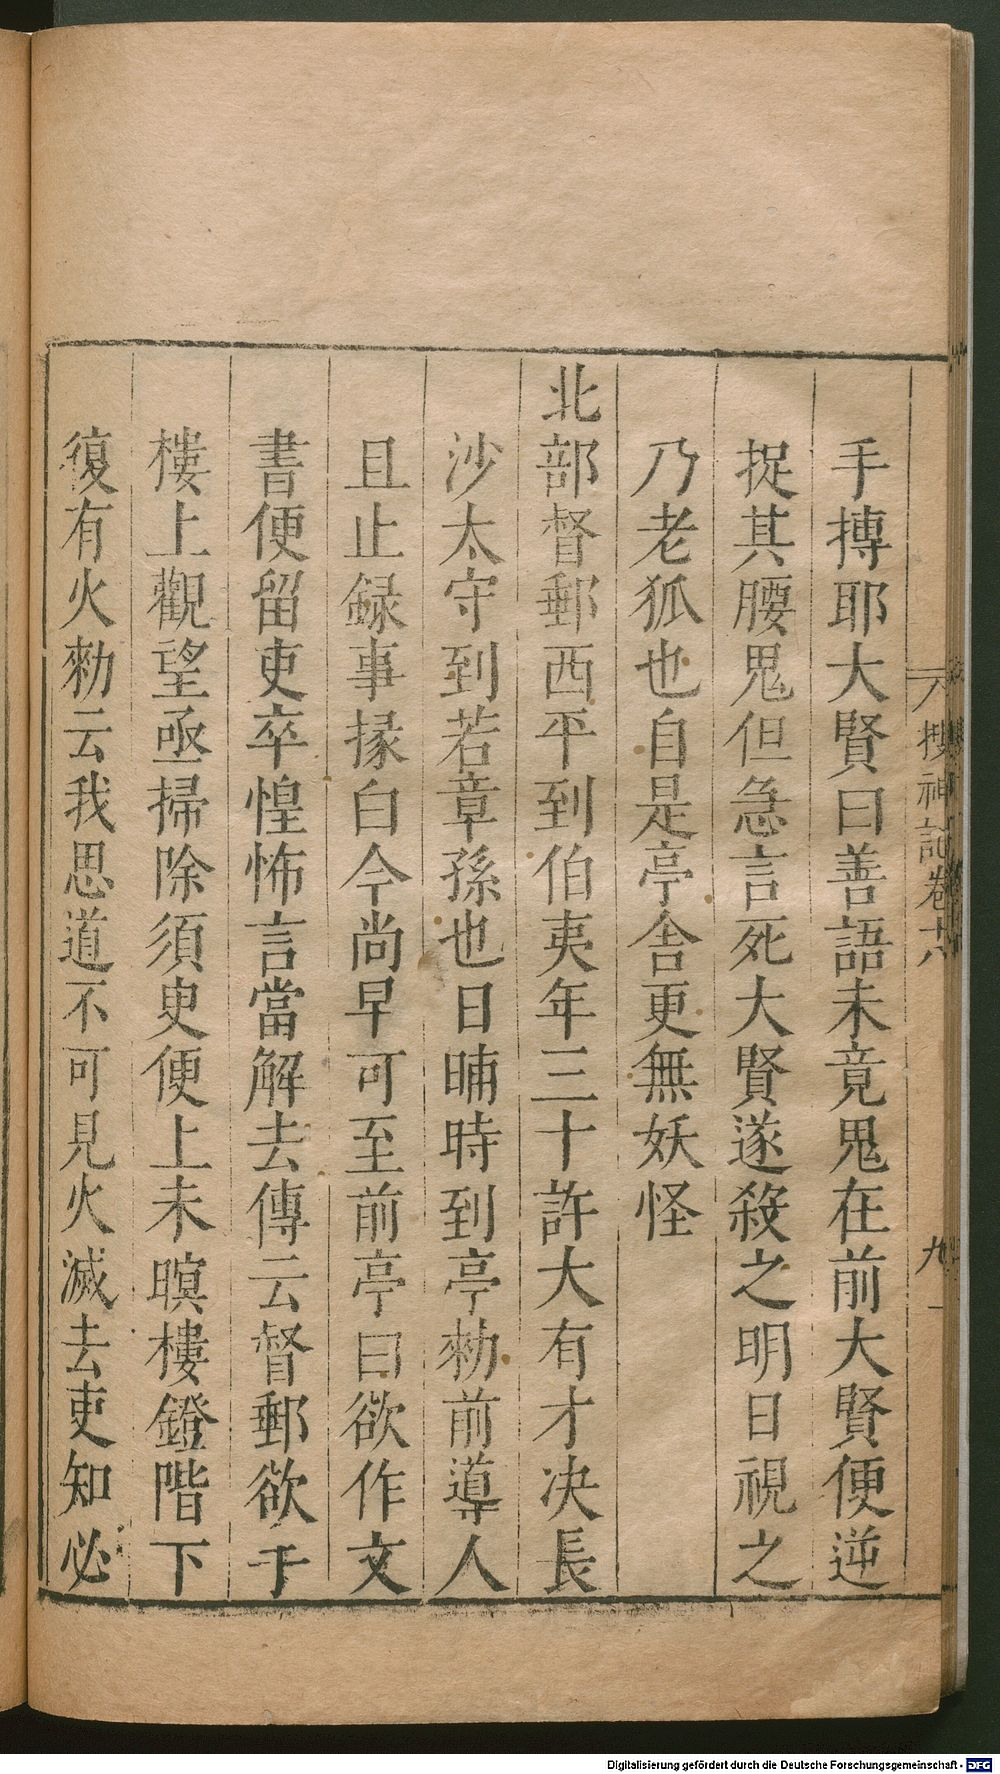 搜神記卷十八
九
手搏耶大賢曰善語未竟鬼在前大賢便逆
捉其腰鬼但急言死大賢遂殺之明日視之
乃老狐也自是亭舍更無妖怪
北部督郵西平到伯夷年三十許大有才决長
沙太守到若章孫也日晡時到亭勑前導人
且止録事掾白今尚早可至前亭曰欲作文
書便留吏卒惶怖言當解去傳云督郵欲于
樓上觀望亟掃除須臾便上未暝樓鐙階下
復有火勑云我思道不可見火滅去吏知必
Digitalisierung gefördert durch die Deutsche Forschungsgemeinschaft - DFG